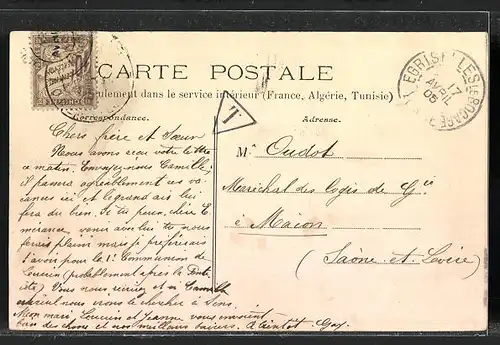 CARTE POSTALE
seulement dans le service intérieur (France, Algérie, Tunisie)
Correspondance.
Adresse.
T
EGRISELLES-LE-BOCAGE
17
AVRIL
06
Chers frère et Sœur
Nous avons reçu votre lettre
ce matin. Envoyez-nous Camille,
il passera agréablement ces va-
cances ici et le grand air lui
fera du bien. Si tu peux, chère E
mérance, venir avec lui tu nous
ferais plaisir mais je préférerais
t'avoir pour la 1e Communion de
Lucien (probablement après la Pente
côte) Vous nous écrirez et si Camille
vient nous irons le chercher à Sens,
Mon mari Lucien et Jeanne vous envoient
bien des choses et nos meilleurs baisers. A bientôt.
Mr Oudot
Maréchal des logis de Gie
à Mâcon
(Saône-et-Loire)